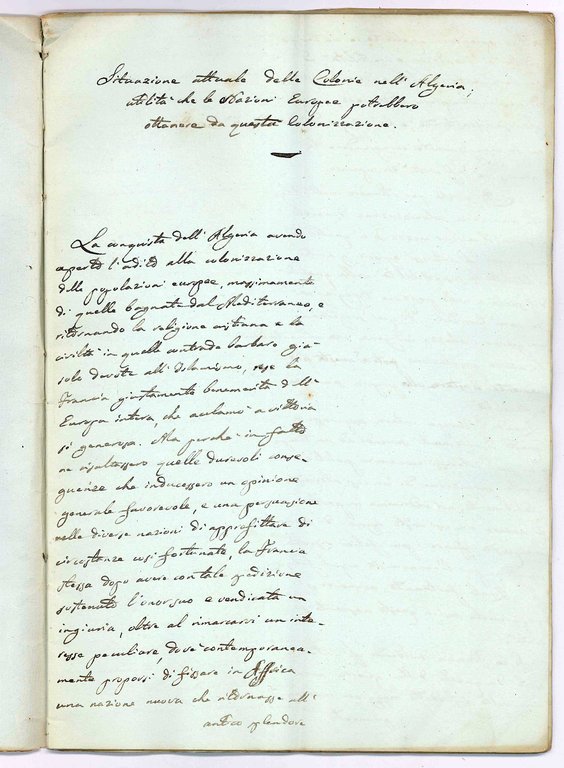 Situazione attuale delle Colonie nell'Algeria;
utilità che le Nazioni Europee potrebbero
ottenere da questa Colonizzazione.
La conquista dell'Algeria avendo
aperto l'adito alla colonizzazione
delle popolazioni europee, massimamente
di quelle bagnate dal Mediterraneo, e
ritornando la religione cristiana e la
civiltà in quelle contrade barbare già
solo devote all'Islamismo, rese la
Francia giustamente benemerita dell'
Europa intera, che aclamò a vittoria
sì generosa. Ma perchè in fatto
ne risultassero quelle durevoli conse-
guenze che inducessero un opinione
generale favorevole, e una persuasione
nelle diverse nazioni di approfittare di
circostanze così fortunate, la Francia
stessa dopo avere con tale spedizione
sostenuto l'onor suo e vendicata un
ingiuria, oltre al rimarcarvi un inte-
resse peculiare, dové contemporanea-
mente proporsi di fissare in Affrica
una nazione nuova che ritornasse all'
antico splendore